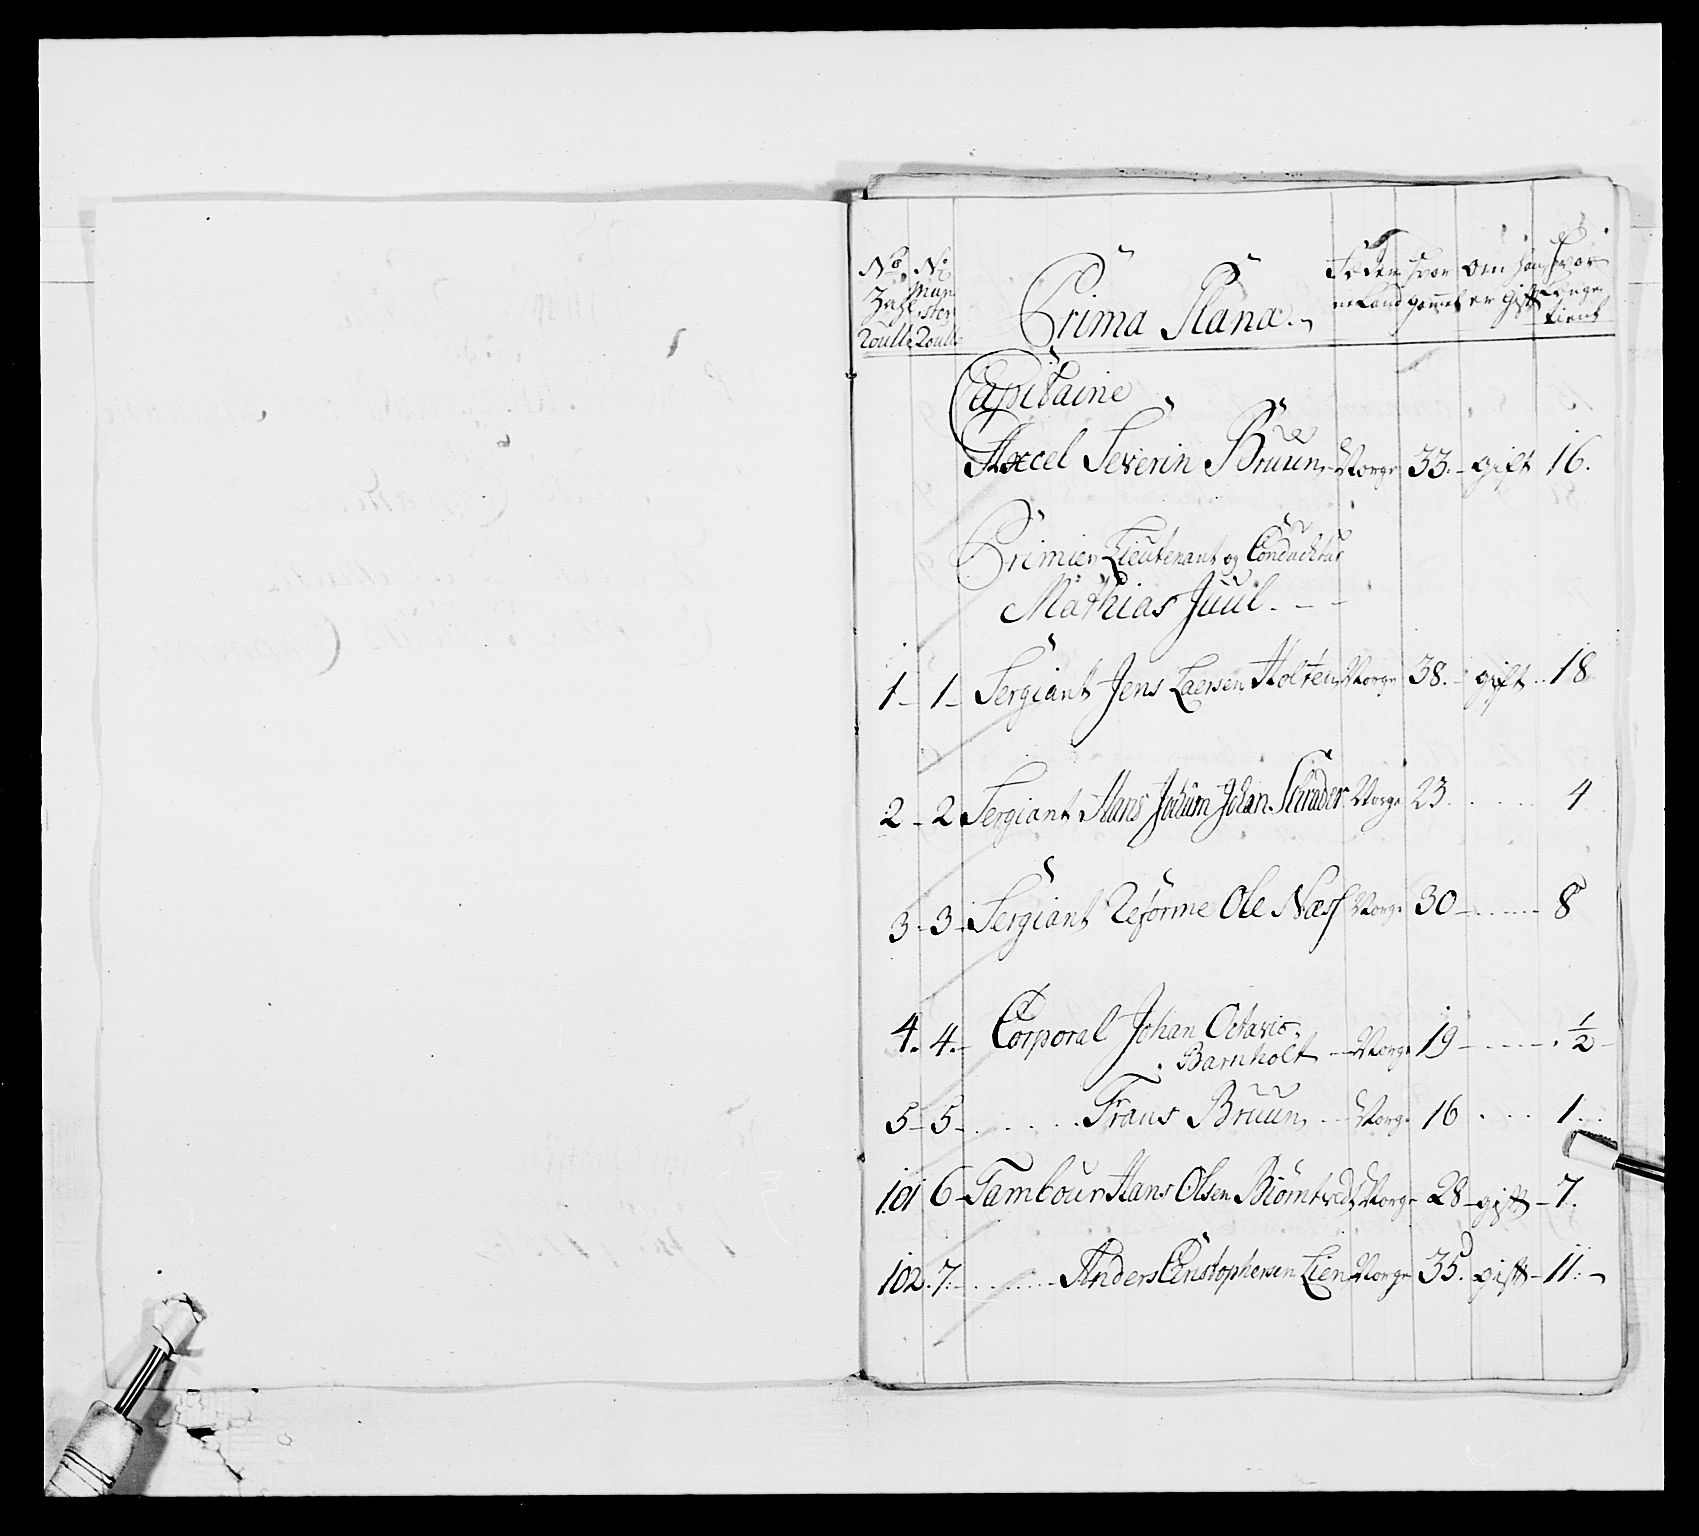 No No Prima Plana. Føden hvor om han hvor
Zahl Mun n Land gammel er gift Længe
Roulle ster Roulle tient
Capitaine
Axcel Severin Bruun Norge 33. gift 16.
Primier Lieutenant og Conducktur
Mathias Juul.
1 1 Sergiant Jens Laersen Holten Norge 38. gift 18
2 2 Sergiant Hans Johan Schrøder Norge 23 4
3 3 Sergiant Reforme Ole Næss Norge 30 8
4. 4. Corporal Johan Octavio
Barnholt Norge 19 1/2
5 5 Frans Bruun Norge 16 1
101 6 Tambour Hans Olsen Biørntvedt Norge 28 gift 7.
102. 7. Anders Christophersen Lien Norge 35. gift 11.